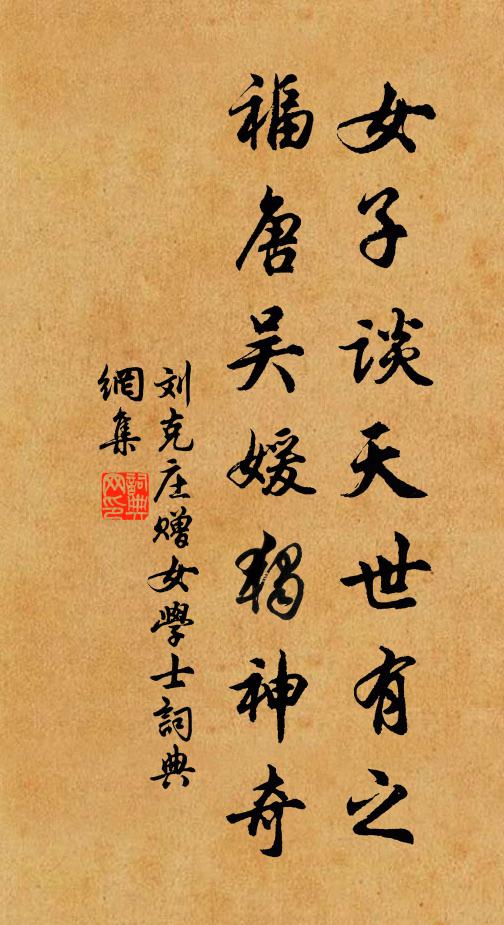 女子談天世有之
福唐吴媛独神奇
刘克庄赠女學士詞典
網集
詞典网印